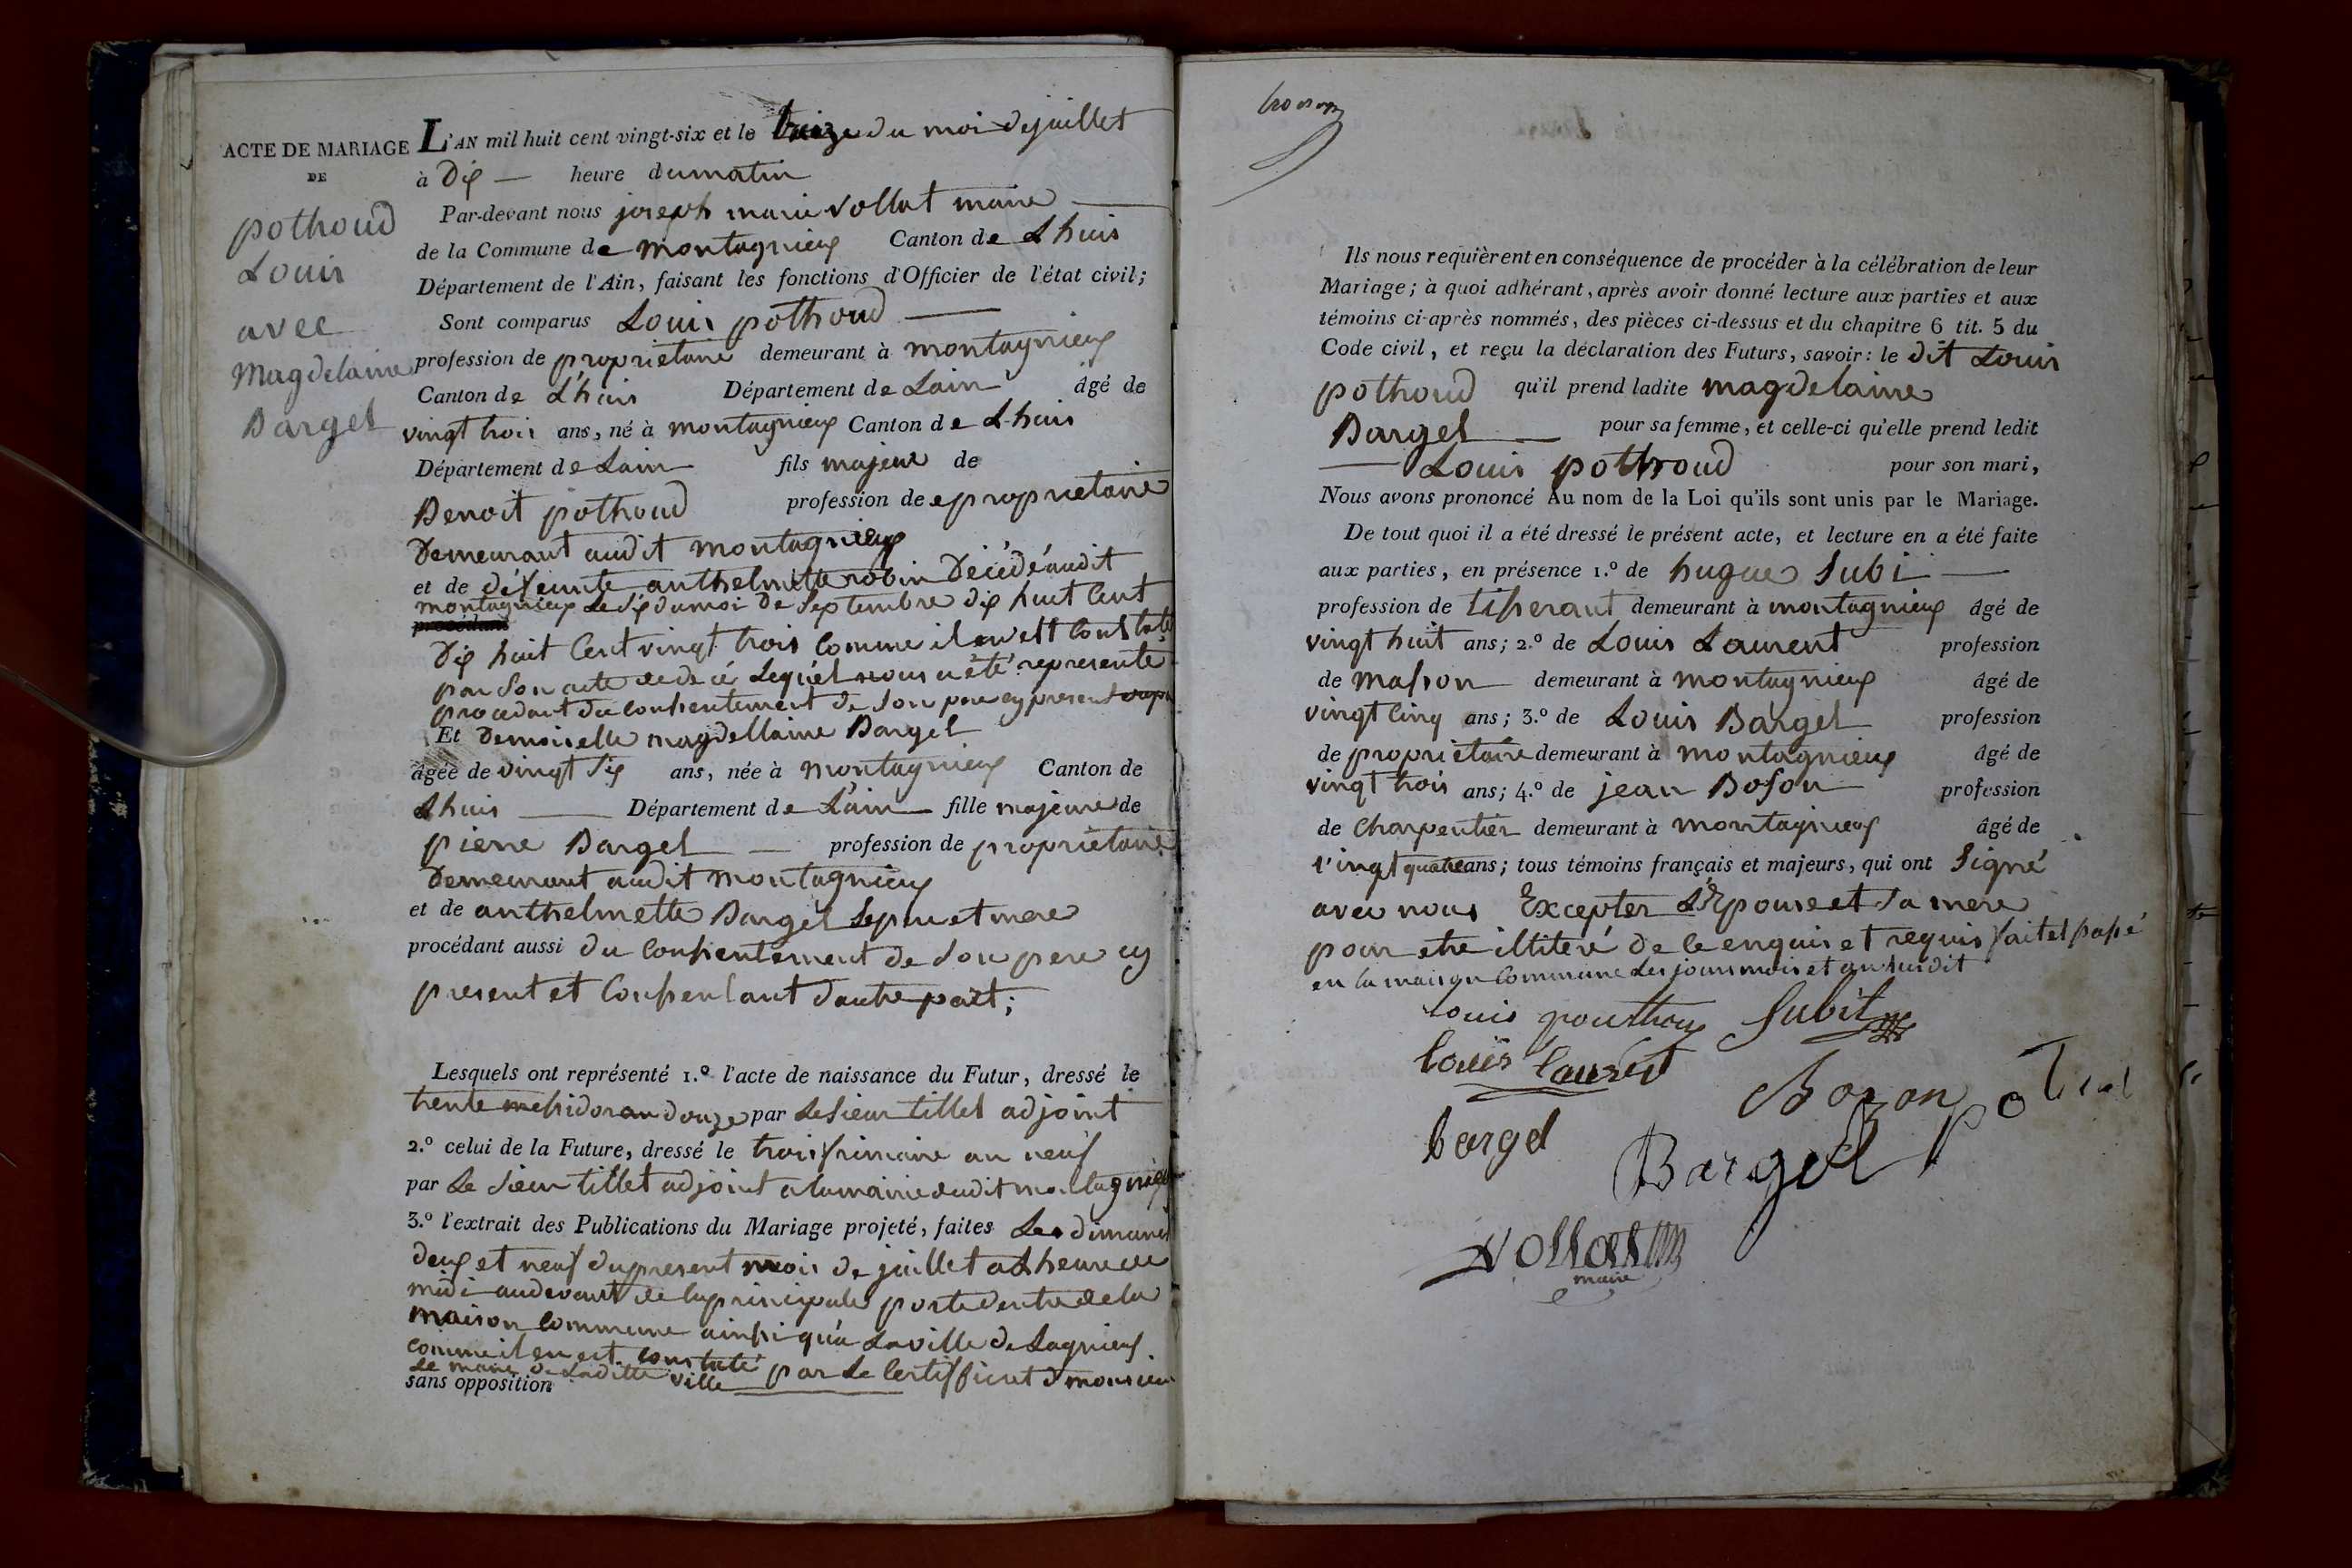 ACTE DE MARIAGE
DE
pothoud
Louis
avec
Magdelaine
Bargel
L'AN mil huit cent vingt-six et le treize du moi de juillet
à dix — heure du matin
Par-devant nous joseph marie vollat maire —
de la Commune de montagnieux Canton de Lhuis
Département de l'Ain, faisant les fonctions d'Officier de l'état civil;
Sont comparus Louis pothoud —
profession de proprietaire demeurant à montagnieux
Canton de L'huis Département de Lain âgé de
vingt trois ans, né à montagnieux Canton de Lhuis
Département de Lain fils majeur de
Benoit pothoud profession de proprietaire
demeurant audit montagnieux
et de defeunte anthelmette robin décédé audit
montagnieux le six du moi de septembre dix huit cent
procédant
dix huit cent vingt trois comme il en est constaté
par son acte de décé lequel nous a été representé
procedant du consentement de son pere cy present
Et demoiselle magdellaine Bargel
âgée de vingt six ans, née à montagnieux Canton de
Lhuis — Département de L'ain fille majeure de
pierre Bargel — profession de proprietaire
demeurant audit montagnieux
et de anthelmette Bargel Ses pere et mere
procédant aussi du consentement de son pere cy
present et consentant d'autre part;
Lesquels ont représenté 1.º l'acte de naissance du Futur, dressé le
trente messidor an douze par le sieur tillet adjoint
2.º celui de la Future, dressé le trois frimaire an neuf
par le sieur tillet adjoint a la mairie dudit montagnieux
3.º l'extrait des Publications du Mariage projeté, faites Les dimanch
deux et neuf du present mois de juillet a L heure de
midi audevant de la principale porte dentre de la
maison commune ainsi qu'a La ville de Lagnieux
comme il en est constaté par le certifficat d monsieur
le maire de Laditte ville
sans opposition
Ils nous requièrent en conséquence de procéder à la célébration de leur
Mariage; à quoi adhérant, après avoir donné lecture aux parties et aux
témoins ci-après nommés, des pièces ci-dessus et du chapitre 6 tit. 5 du
Code civil, et reçu la déclaration des Futurs, savoir: le dit Louis
pothoud qu'il prend ladite magdelaine
Bargel — pour sa femme, et celle-ci qu'elle prend ledit
— Louis pothoud pour son mari,
Nous avons prononcé Au nom de la Loi qu'ils sont unis par le Mariage.
De tout quoi il a été dressé le présent acte, et lecture en a été faite
aux parties, en présence 1.º de hugue Subi —
profession de tisserant demeurant à montagnieux âgé de
vingt huit ans; 2.º de Louis Laurent profession
de masson demeurant à montagnieux âgé de
vingt cinq ans; 3.º de Louis Bargel profession
de proprietaire demeurant à montagnieux âgé de
vingt trois ans; 4.º de jean Boson profession
de charpentier demeurant à montagnieux âgé de
vingt quatre ans; tous témoins français et majeurs, qui ont signé
avec nous Excepter L'Epouse et sa mere
pour etre illiteré de ce enquis et requis fait et passé
en la maison commune les jour mois et an susdit
Louis pouthou Subit
louis laurent
Bozon
bargel
Bargel
vollat
maire